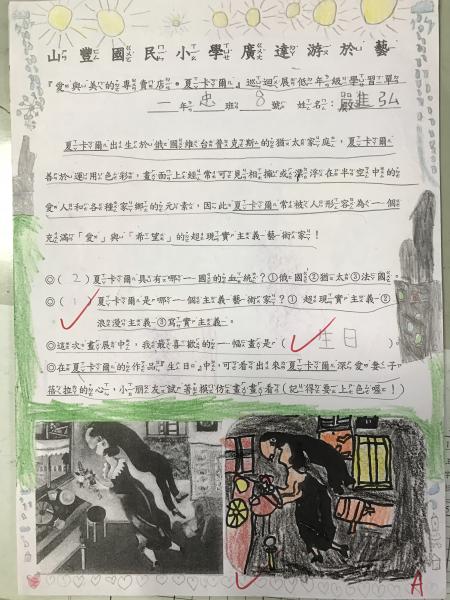 山豐國民小學廣達游於藝
『愛與美的專賣店。夏卡爾』巡迴展低年級學習單
一年忠班8號 姓名：嚴進弘
夏卡爾出生於俄國維台普克斯的猶太家庭，夏卡爾
善於運用色彩，畫面上經常可見相擁或漂浮在半空中的
愛人和各種家鄉的元素，因此夏卡爾常被人形容為一個
充滿「愛」與「希望」的超現實主義藝術家！
◎（2）夏卡爾具有哪一國的血統？①俄國②猶太③法國。
◎（1）夏卡爾是哪一個主義藝術家？①超現實主義②
浪漫主義③寫實主義。
◎這次畫展中，我最喜歡的一幅畫是（生日）。
◎在夏卡爾的作品『生日』中，可看出來夏卡爾深愛妻子
蓓拉的心，小朋友試著模仿畫畫看（記得要上色喔！）
A